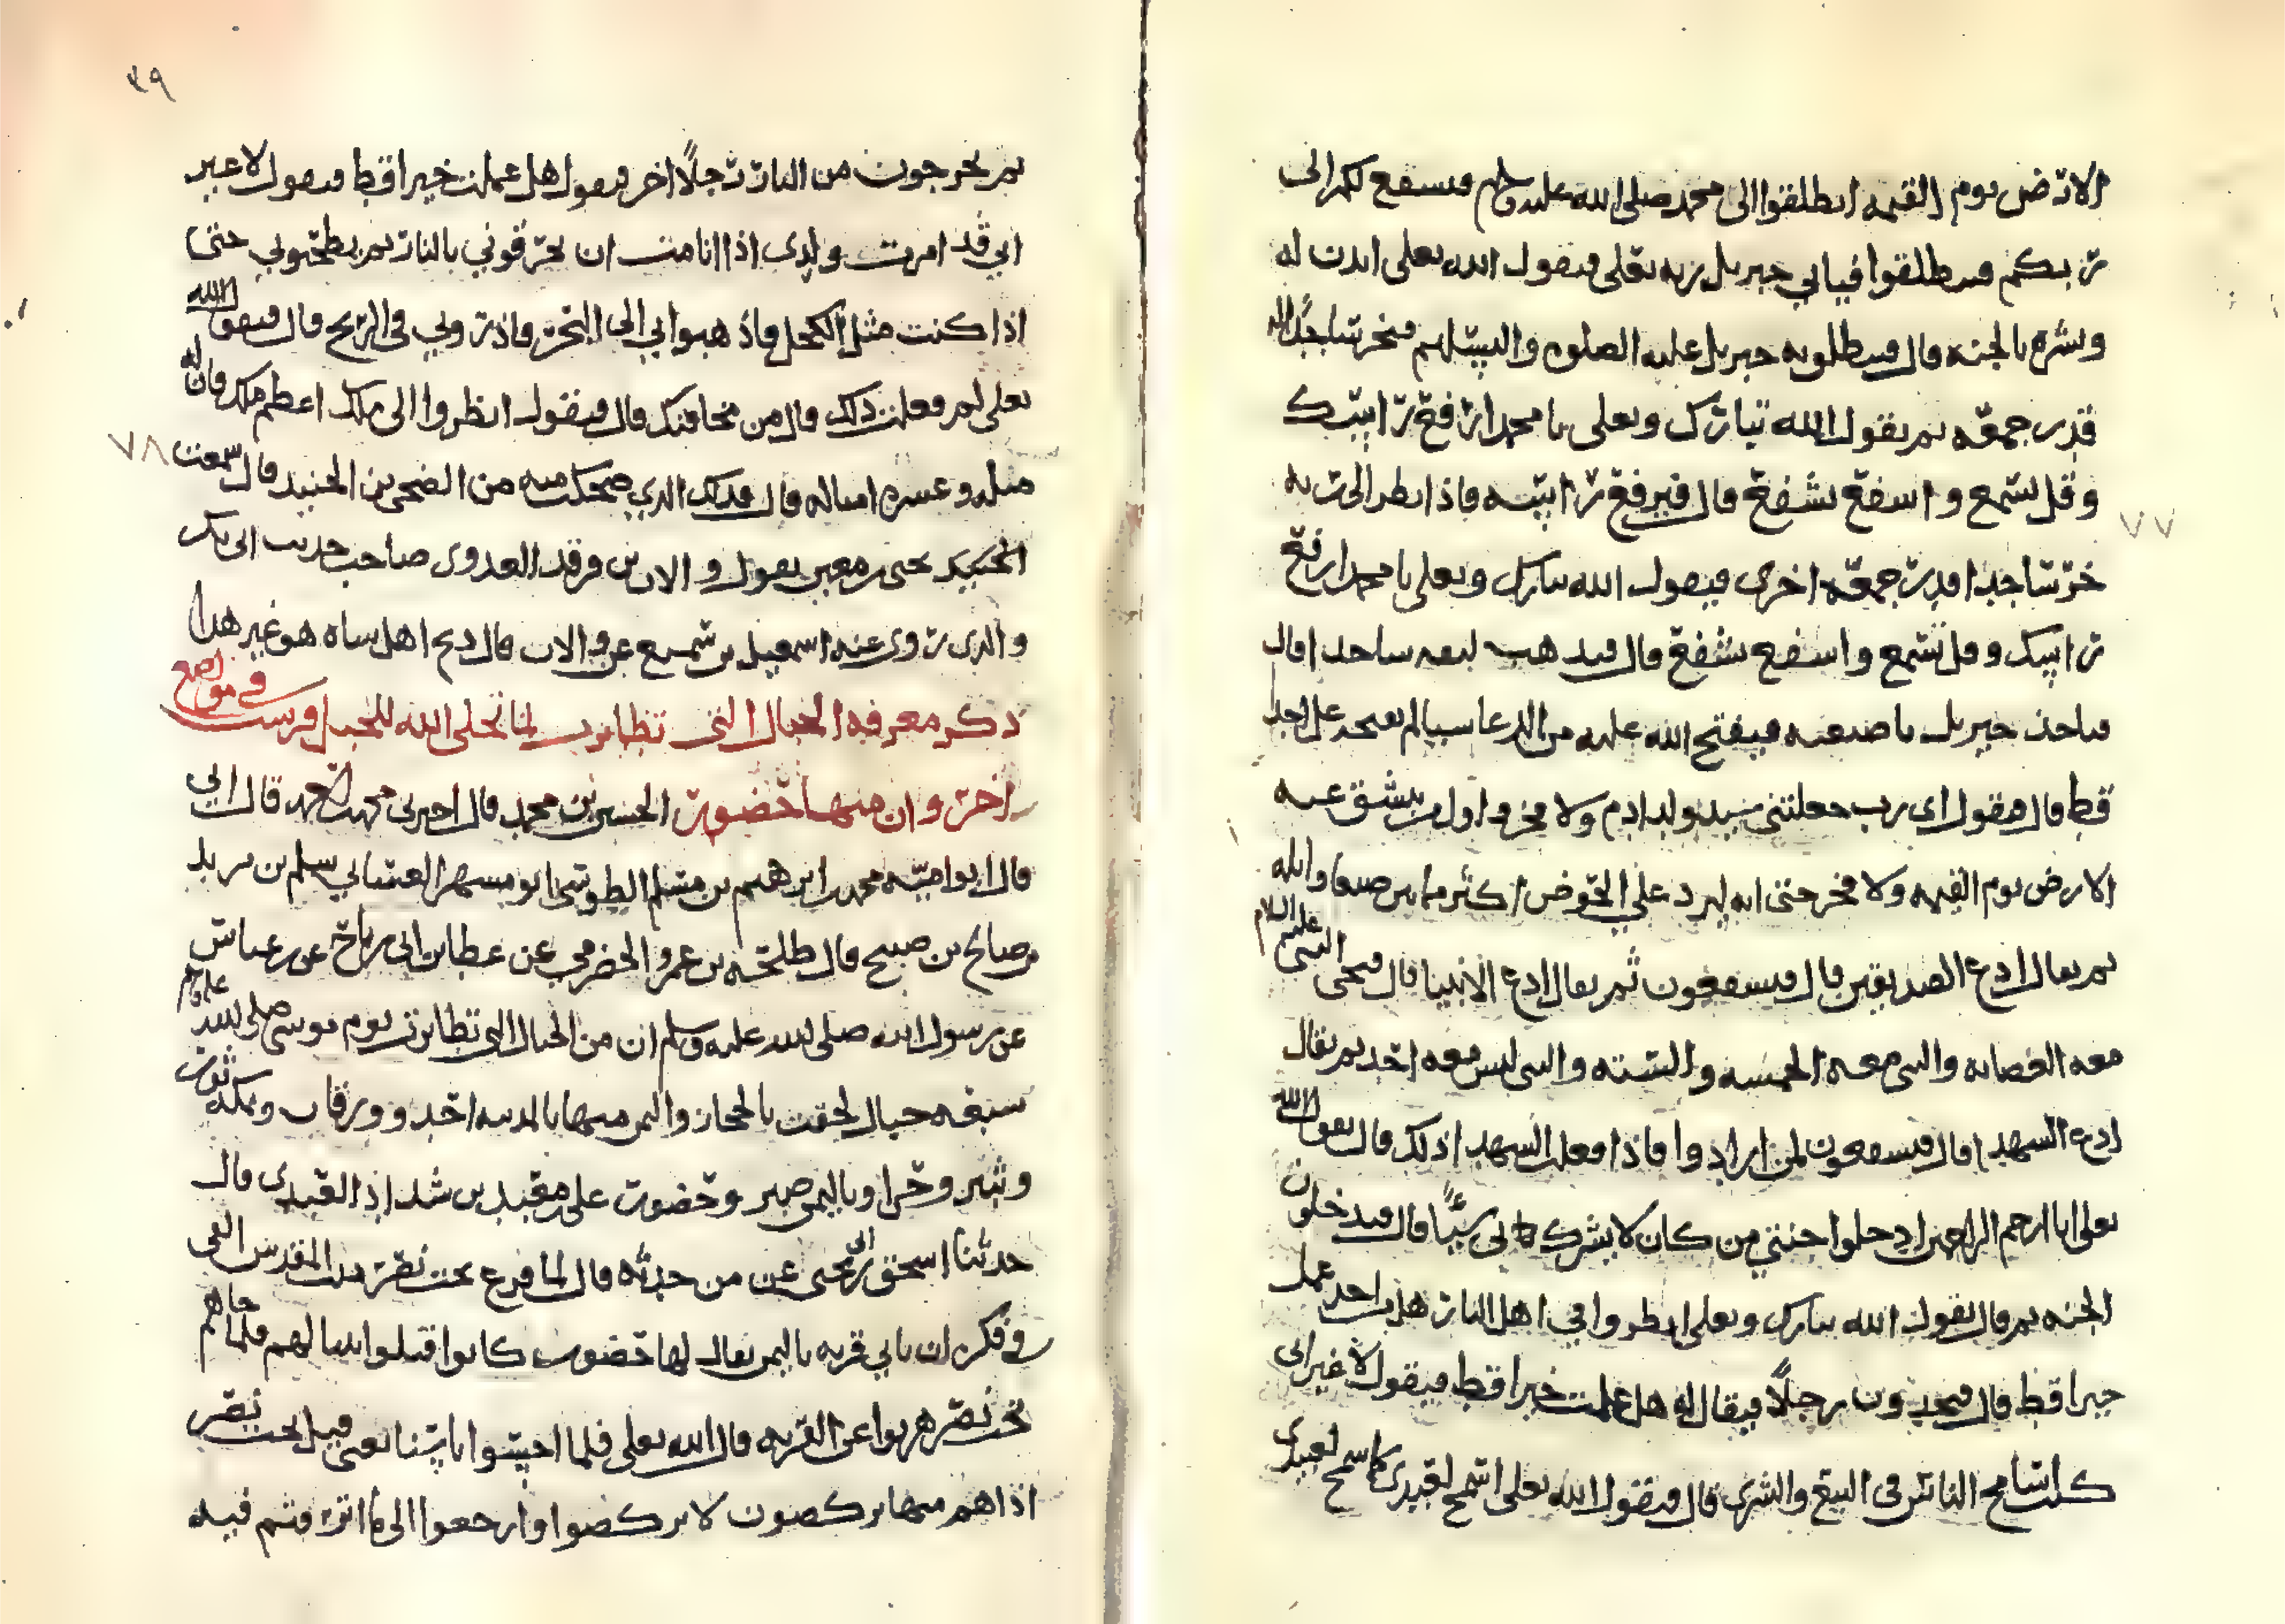 الارض يوم القيمه انطلقوا الى محمد صلى الله عليه وسلم فيشفع لكم الى
ربكم فينطلقوا فياتي جبريل ربه تعلى فيقول الله تعلى ايذن له
وبشره بالجنه قال فينطلق به جبريل عليه الصلوه والسلم فيخر ساجدا لله
قدر جمعه ثم يقول الله تبارك وتعلى يا محمد ارفع راسك
وقل تسمع واشفع تشفع قال فيرفع راسه فاذا نظر الى ربه
خر ساجدا قدر جمعه اخرى فيقول الله تبارك وتعلى يا محمد ارفع
راسك وقل تسمع واشفع تشفع قال فيذهب ليقع ساجدا قال
فياخذ جبريل باضبعيه فيفتح الله عليه من الدعا شيا لم يفتحه على احد
قط قال فيقول اى رب جعلتني سيد ولد ادم ولا فخر واول من تنشق عنه
الارض يوم القيمه ولا فخر حتى انه ليرد علي الحوض اكثر ما بين صنعا وايله
ثم يقال ادع الصديقين قال فيشفعون ثم يقال ادع الانبيا قال فيجى النبى عليه السلام
معه العصابه والنبي معه الخمسه والسته والنبي ليس معه احد ثم يقال
ادع الشهدا قال فيشفعون لمن ارادوا فاذا فعلت الشهدا ذلك قال يقول الله
تعلى انا ارحم الراحمين ادخلوا جنتي من كان لا يشرك بى شيًا قال فيدخلون
الجنه ثم قال يقول الله تبارك وتعلى انظروا في اهل النار هل من احد عمل
خيرا قط قال فيجدون رجلًا فيقال له هل عملت خيرا قط فيقول لا غير انى
كنت اسامح الناس فى البيع والشرى قال فيقول الله تعلى اسمح لعبدى كما سمح لعبيدى
٧٧
٣٩
ثم يخرجون من النار رجلًا اخر فيقول هل عملت خيرا قط فيقول لا غير
اني قد امرت ولدى اذا انا مت ان يحرقوني بالنار ثم يطحنوني حتى
اذا كنت مثل الكحل فاذهبوا بي الى البحر فاذروني فى الريح قال فيقول الله
تعلى لم فعلت ذلك قال من مخافتك قال فيقول انظروا الى ملك اعظم ملك فان لك
مثله وعشره امثاله قال فذلك الذي ضحكت منه من الضحى بن الجنيد قال سمعت
٧٨
الجنيد يحيى بن معين يقول والان بن فرقد العدوى صاحب حديث ابى بكر
والذى روى عنه اسمعيل بن سميع عن والان قال ذبح اهل شاه هو غير هذا
ذكر معرفه الجبال التى تطايرت لما تجلى الله للجبل فرست فى مواضع
اخر وان منها حضور الحسين بن محمد قال اخبرنى محمد بن احمد قال ابي
قال ابو اميه محمد بن ابرهيم بن مسلم الطوسى ابو مسهر الغساني سلم بن
بن صالح بن صبيح قال طلحه بن عمرو الحضرمي عن عطا بن ابى رباح عن بن عباس
عن رسول الله صلى الله عليه وسلم ان من الجبال التى تطايرت يوم موسى صلى الله عليه وسلم
سبعه جبال لحقت بالحجاز واليمن منها بالمدينه احد وورقان وبمكه ثور
وثبير وحرا وباليمن صبر وحضور على بن معبد بن شداد العبدى قال
حدثنا اسحق بن ابى يحيى عن من حدثه قال لما فرغ بخت نصر من بيت المقدس القى
فى فكره ان ياتي قريه باليمن يقال لها حضور كانوا قتلوا نبيا لهم فلما جاهم
بخت نصر هربوا عن القريه قال الله تعلى فلما احسوا باسنا يعنى قيل بخت نصر
اذا هم منها يركضون لا يركضوا وارجعوا الى ما اترفتم فيه